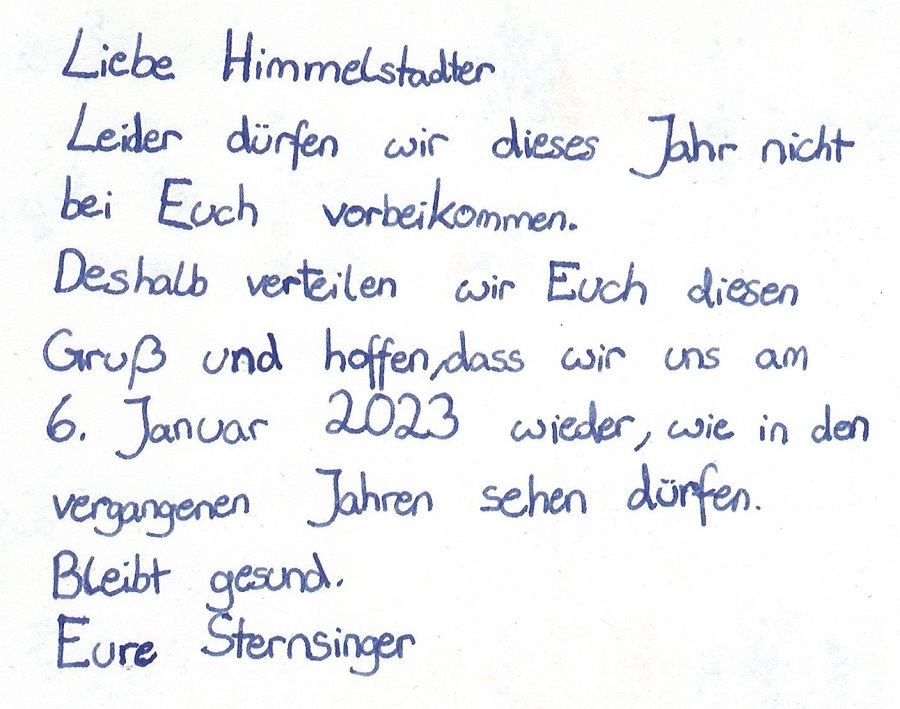 Liebe Himmelstadter
Leider dürfen wir dieses Jahr nicht
bei Euch vorbeikommen.
Deshalb verteilen wir Euch diesen
Gruß und hoffen, dass wir uns am
6. Januar 2023 wieder, wie in den
vergangenen Jahren sehen dürfen.
Bleibt gesund.
Eure Sternsinger